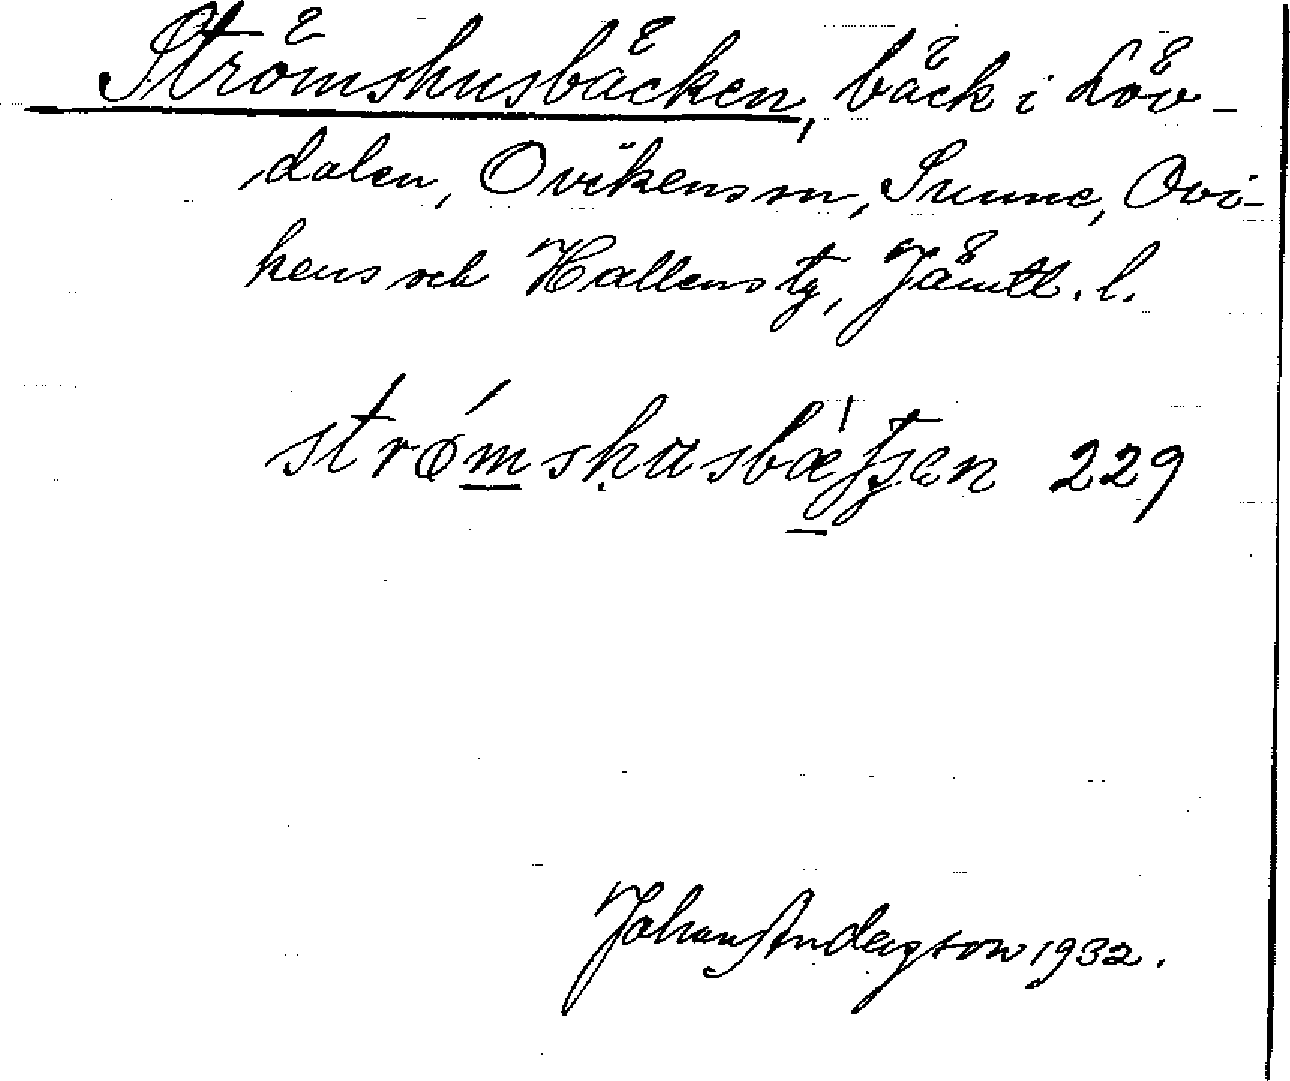 Strömshusbäcken, bäck i Löv-
dalen, Ovikens sn, Sunne, Ovi-
kens och Hallens tg, Jämtl. l.
229
Johan Anderson 1932.